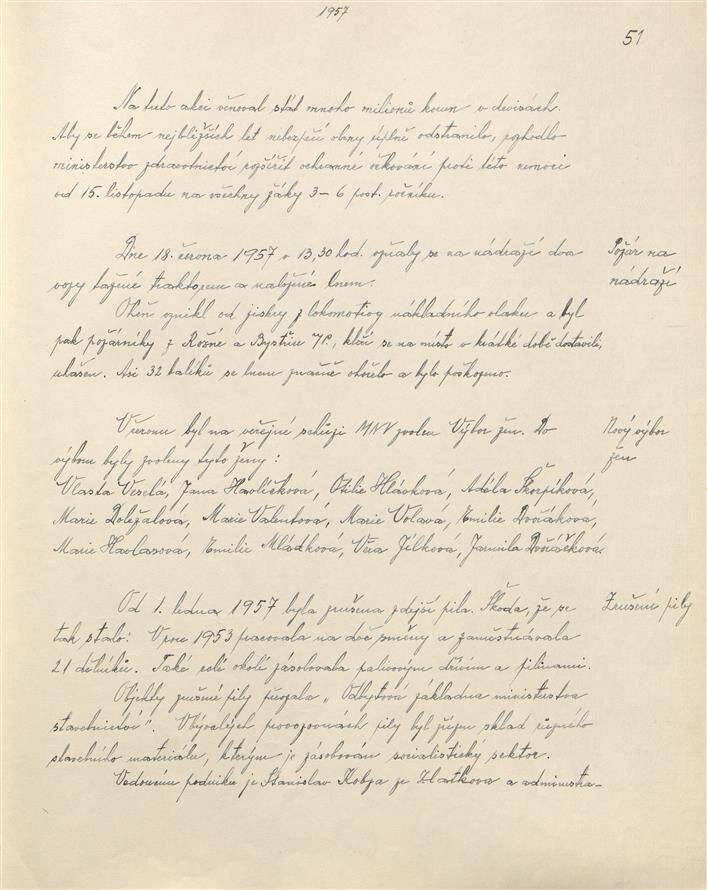 1957
51
Na tuto akci věnoval stát mnoho milionů korun v devisách.
Aby se během nejbližších let nebezpečí obrny úplně odstranilo, rozhodlo
ministerstvo zdravotnictví rozšířit ochranné očkování proti této nemoci
od 15. listopadu na všechny žáky 3–6 post. ročníku.
Dne 18. června 1957 o 13,30 hod. vzňaly se na nádraží dva
Požár na
vozy tažené traktorem a naložené lnem.
nádraží
Oheň vznikl od jiskry z lokomotivy nákladního vlaku a byl
pak požárníky z Rožné a Bystřice n/P., kteří se na místo v krátké době dostavili,
uhašen. Asi 32 balíků se lnem značně ohořelo a bylo poškozeno.
V červnu byl na veřejné schůzi MNV zvolen Výbor žen. Do
Nový výbor
výboru byly zvoleny tyto ženy:
žen
Vlasta Veselá, Jana Havlíčková, Otilie Hlávková, Adéla Škorpíková,
Marie Doležalová, Marie Valentová, Marie Volavá, Emilie Dvořáková,
Marie Havlasová, Emilie Mládková, Věra Jílková, Jarmila Dvořáčková.
Od 1. ledna 1957 byla zrušena zdejší pila. Škoda, že se
Zrušení pily
tak stalo: V roce 1953 pracovala na dvě směny a zaměstnávala
21 dělníků. Také celé okolí zásobovala palivovým dřívím a pilinami.
Objekty zrušené pily převzala „Odbytová základna ministerstva
stavebnictví". V bývalých provozovnách pily byl zřízen sklad různého
stavebního materiálu, kterým je zásobován socialistický sektor.
Vedoucím podniku je Stanislav Kobza ze Zlatkova a administra-